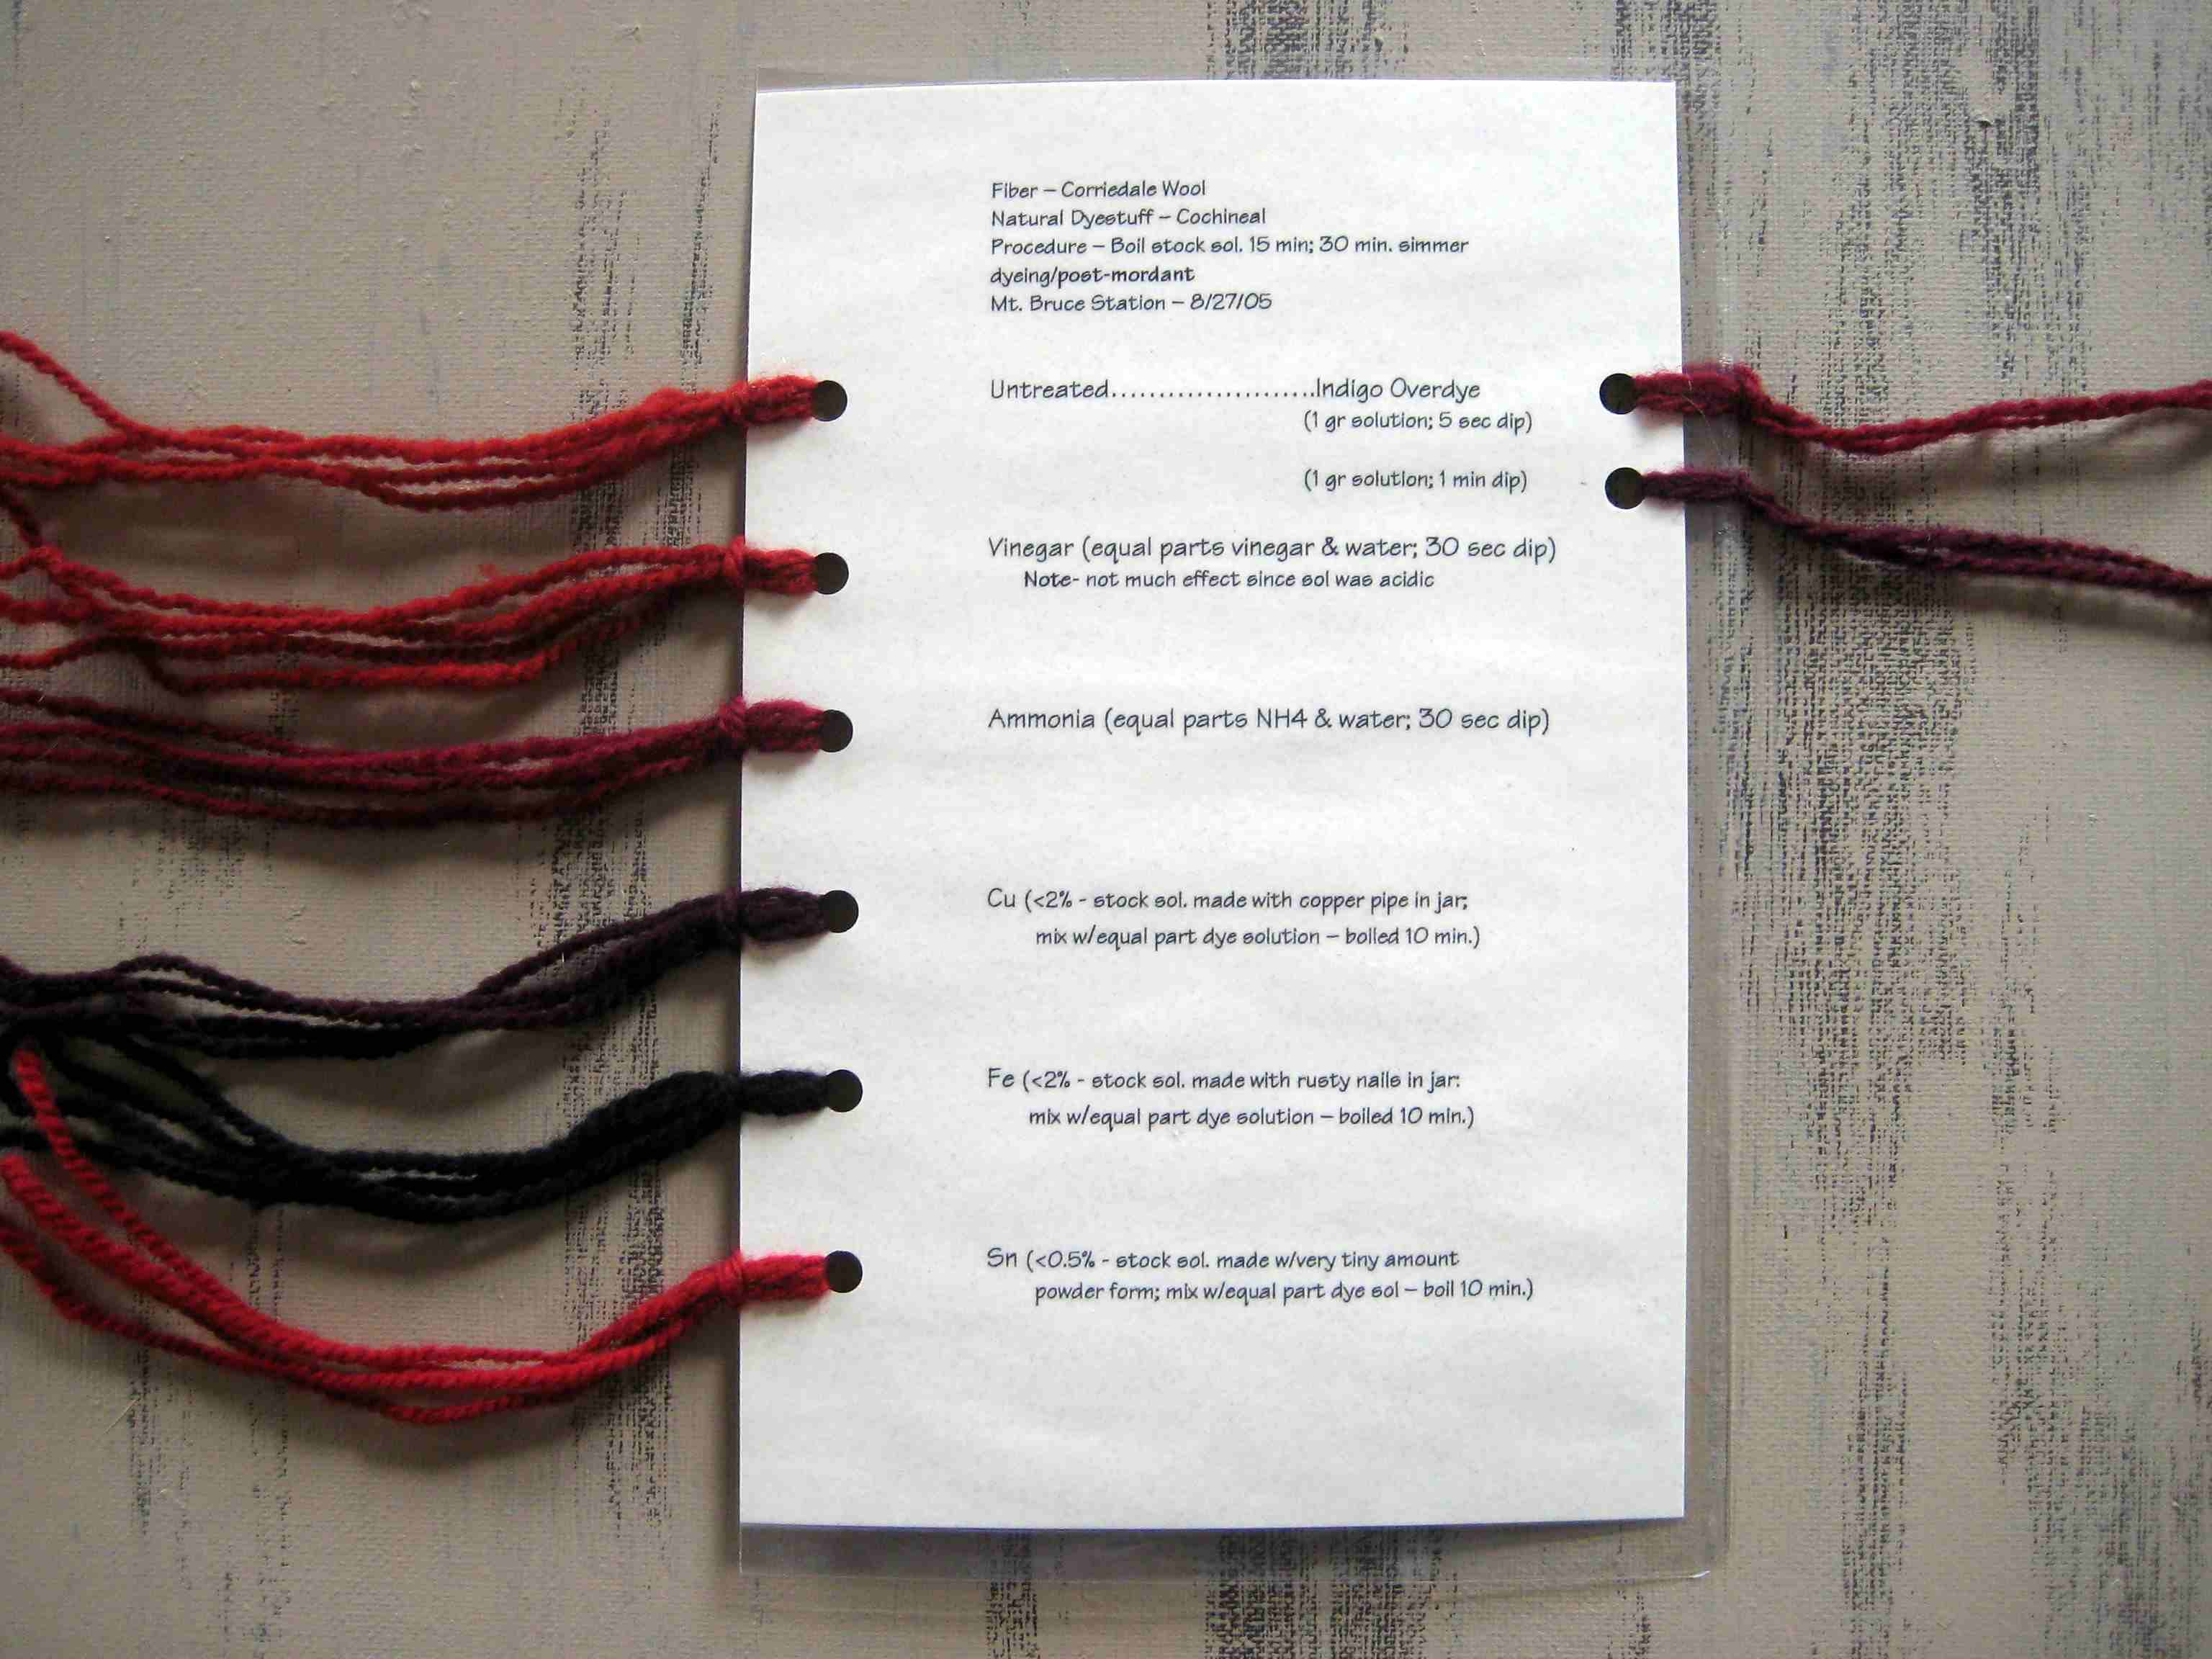 Fiber – Corriedale Wool
Natural Dyestuff – Cochineal
Procedure – Boil stock sol. 15 min; 30 min. simmer
dyeing/post-mordant
Mt. Bruce Station – 8/27/05
Untreated......................Indigo Overdye
(1 gr solution; 5 sec dip)
(1 gr solution; 1 min dip)
Vinegar (equal parts vinegar & water; 30 sec dip)
Note- not much effect since sol was acidic
Ammonia (equal parts NH4 & water; 30 sec dip)
Cu (<2% - stock sol. made with copper pipe in jar;
mix w/equal part dye solution – boiled 10 min.)
Fe (<2% - stock sol. made with rusty nails in jar:
mix w/equal part dye solution – boiled 10 min.)
Sn (<0.5% - stock sol. made w/very tiny amount
powder form; mix w/equal part dye sol – boil 10 min.)